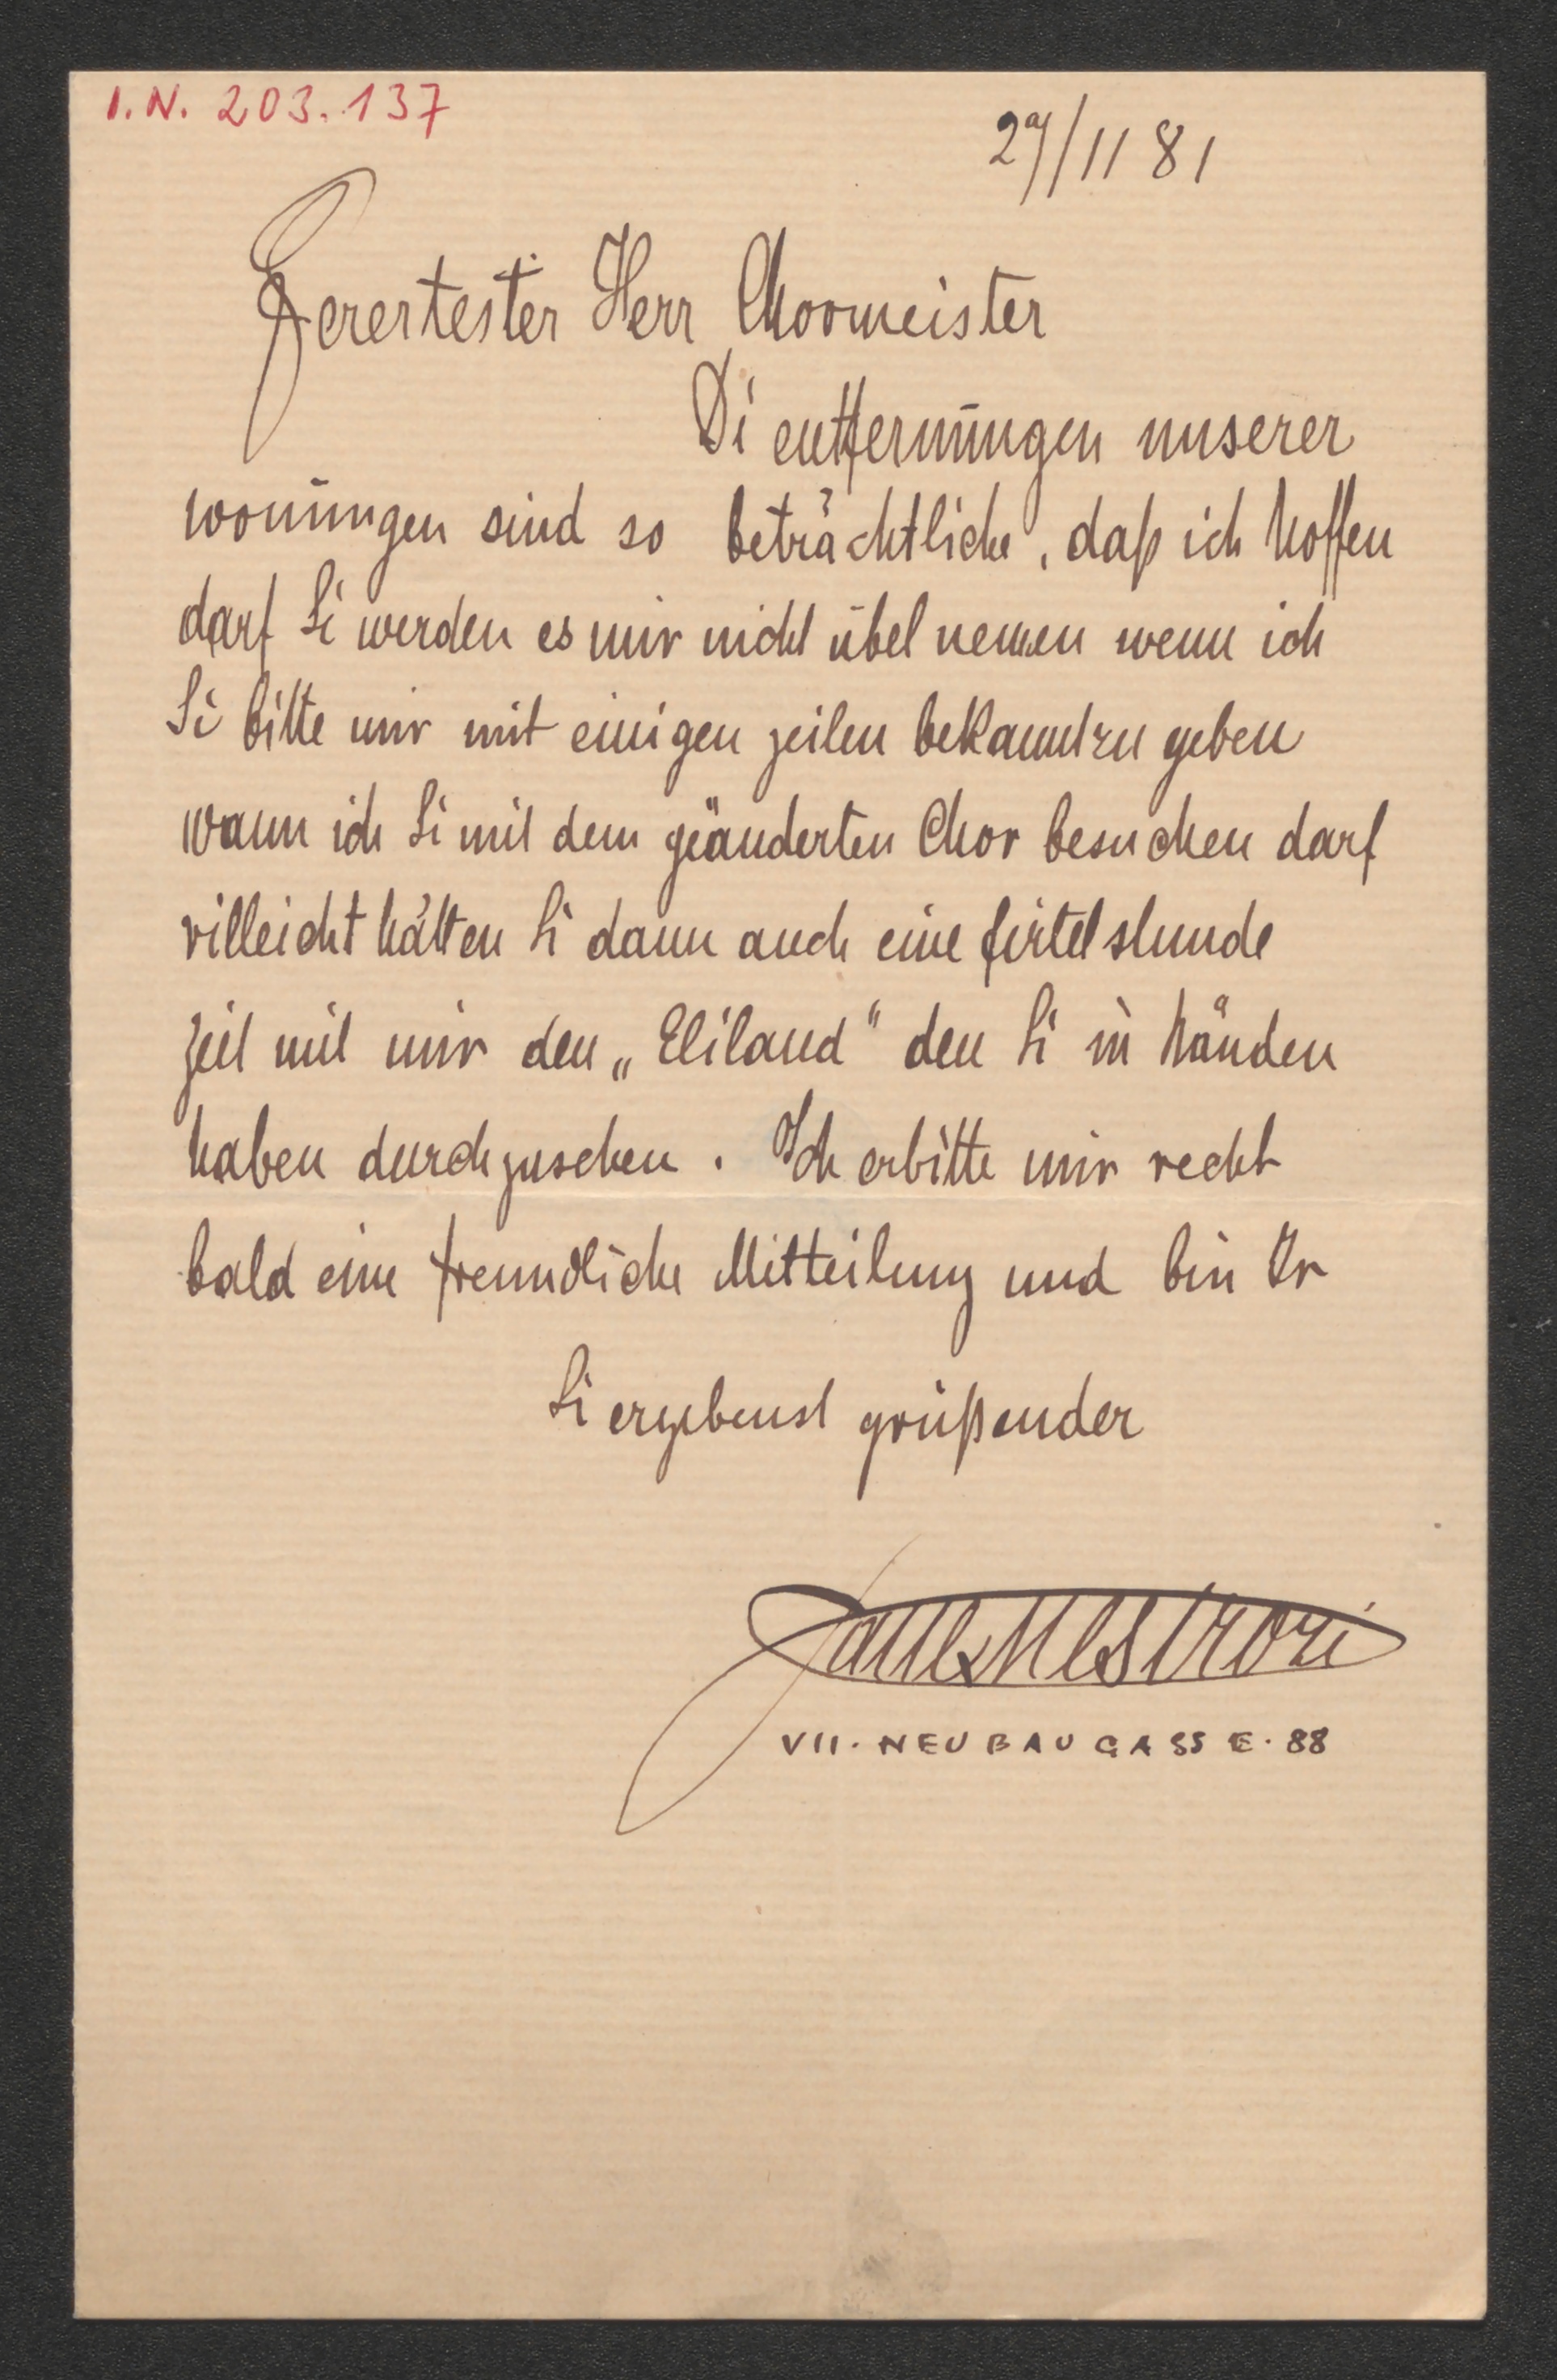 I.N. 203.137
29/11 81
Ferertester Herr Chormeister
Di entfernungen unserer
wonungen sind so beträchtliche, daß ich hoffen
darf Si werden es mir nicht übel nemen wenn ich
Si bitte mir mit einigen zeilen bekanntzu geben
wann ich Si mit dem geänderten Chor besuchen darf
villeicht hätten Si dann auch eine firtelstunde
zeit mit mir den „Eliland" den Si in händen
haben durchzusehen. Ich erbitte mir recht
bald eine freundliche Mitteilung und bin Ir
Si ergebenst grüßender
Paul Mestrozi
VII. NEUBAUGASSE. 88